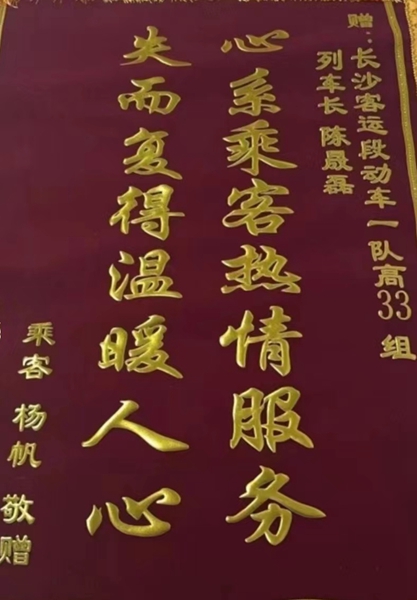 赠：长沙客运段动车一队高33组
列车长 陈晟磊
心系乘客热情服务
失而复得温暖人心
乘客 杨帆 敬赠